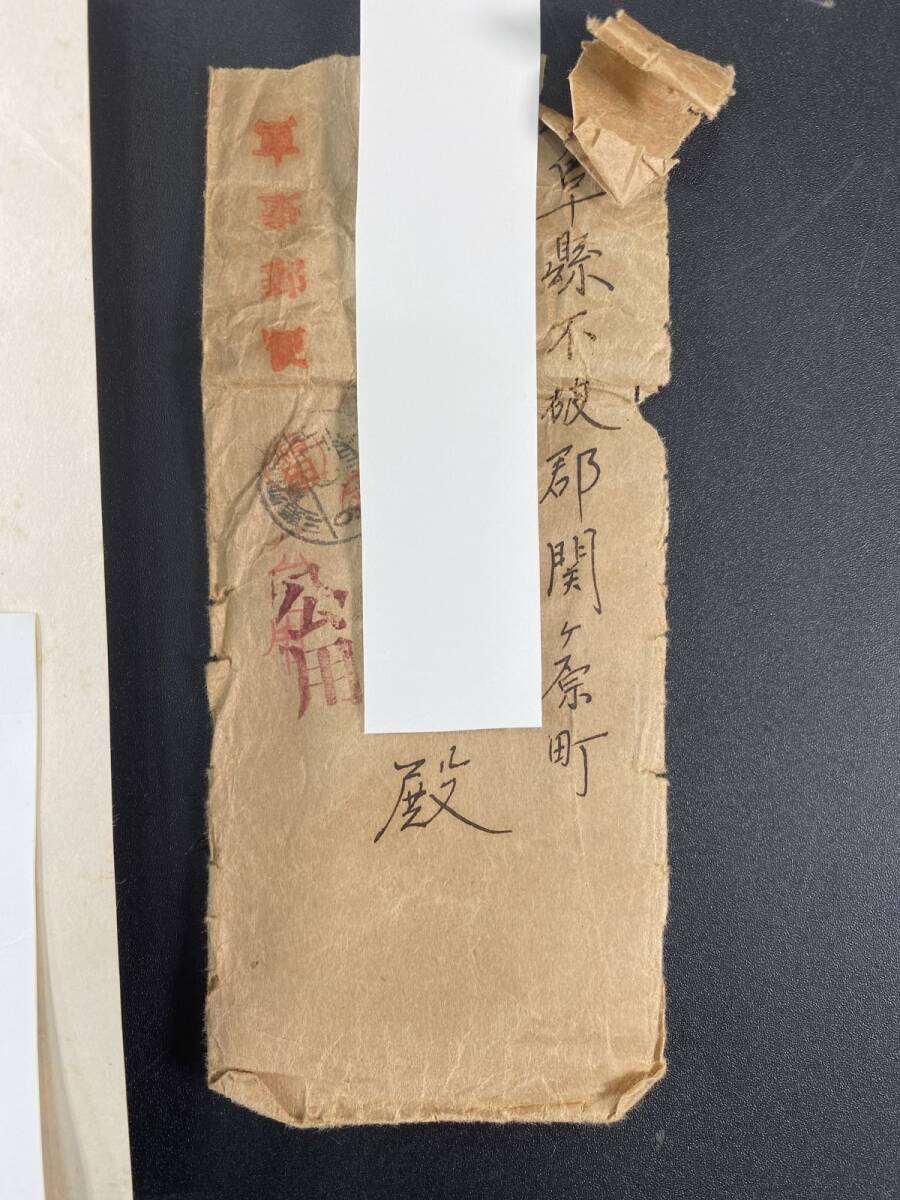 阜縣不破郡関ヶ原町
殿
軍事郵便
公用